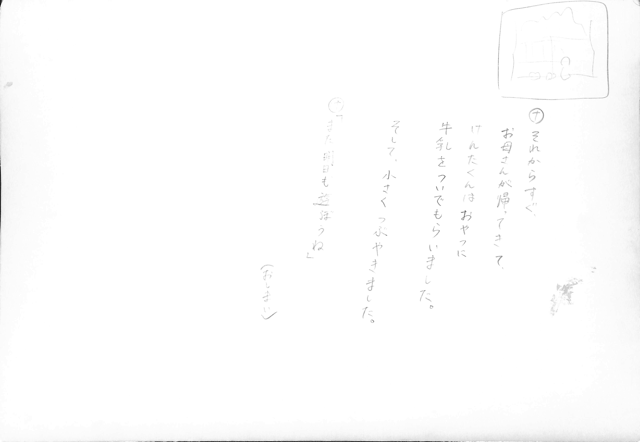 ナ それからすぐ、
お母さんが帰ってきて、
けんたくんはおやつに
牛乳をついでもらいました。
そして、小さくつぶやきました。
「また明日も遊ぼうね」
(おしまい)